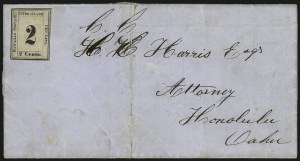 2
2 Cents.
C. C.
H. H. Harris Esqr
Attorney
Honolulu
Oahu